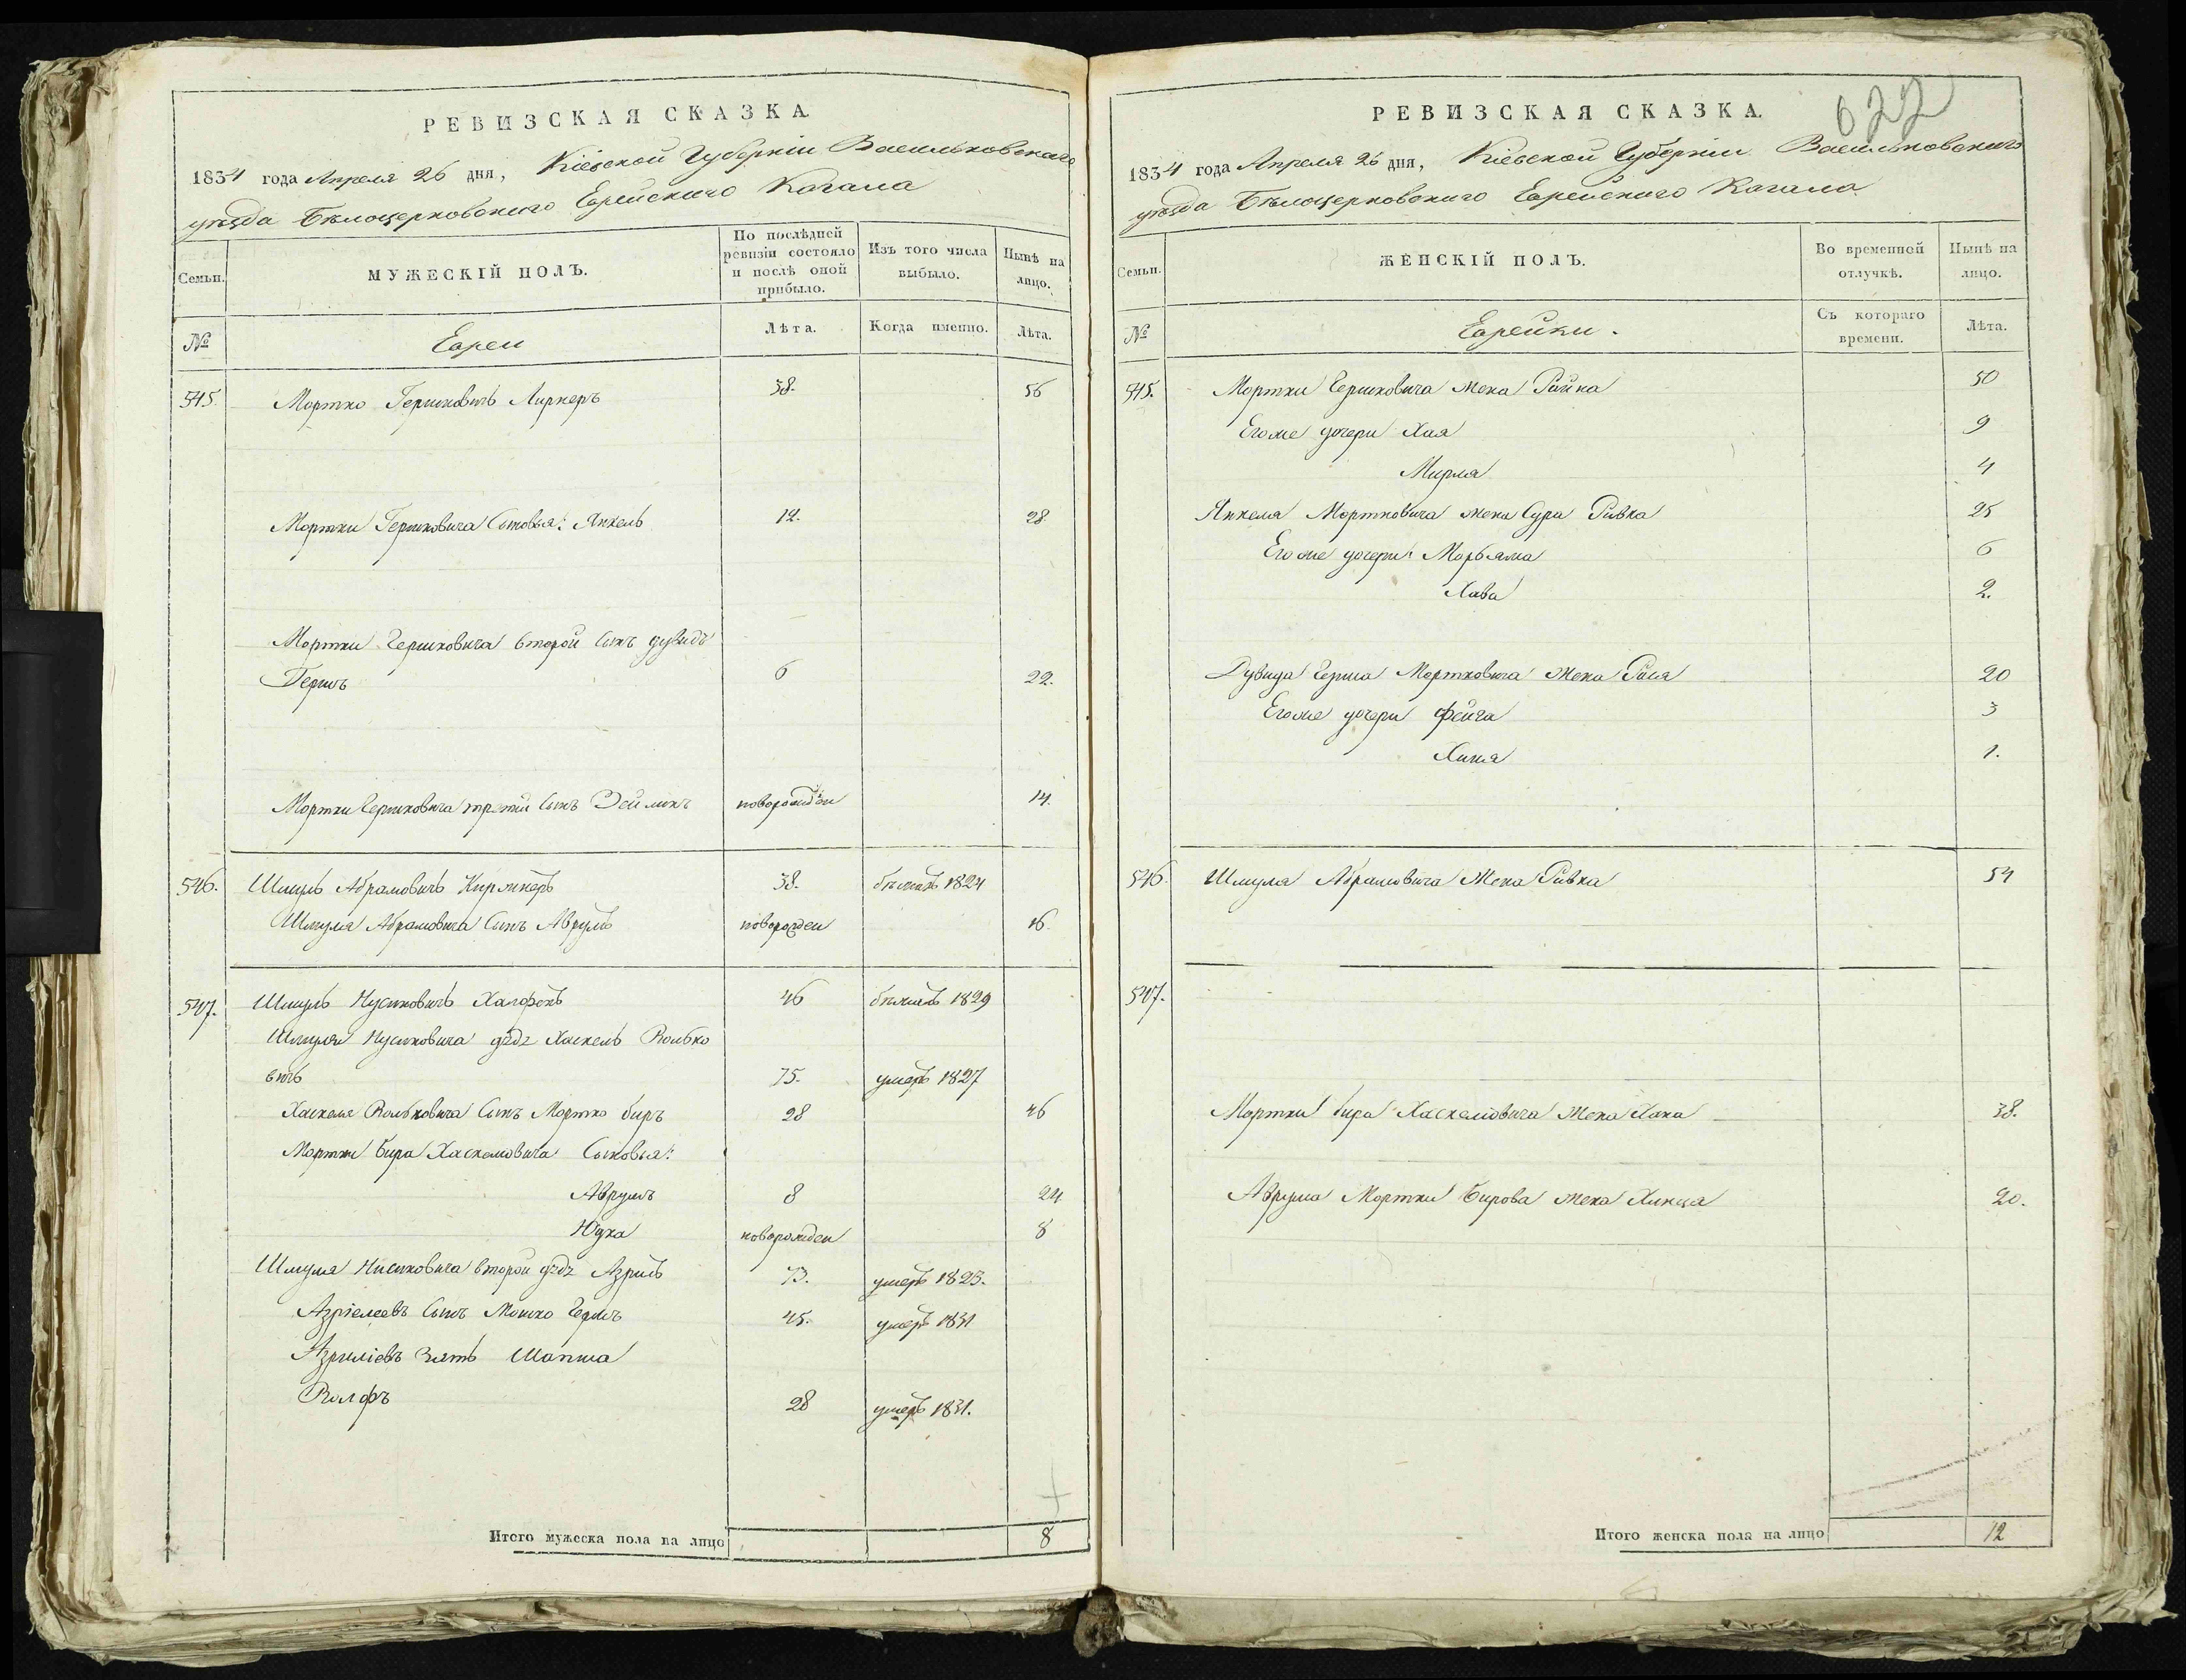 РЕВИЗСКАЯ СКАЗКА
1834 года Апреля 26 дня, Кіевской Губерніи Васильковскаго
уѣзда Бѣлоцерковскаго Еврейскаго Кагала
Семьи.
МУЖЕСКІЙ ПОЛЪ.
По послѣдней ревизіи состояло и послѣ оной прибыло.
Изъ того числа выбыло.
Нынѣ на лицо.
№
Евреи
Лѣта.
Когда именно.
Лѣта.
545. Мортко Гершковичь Лирнеръ 38. 56
Мортки Гершковича Сыновья: Янкель 12. 28
Мортки Гершковича второй сынъ Дувидъ
Гершъ 6 22.
Мортки Гершковича третій сынъ Зейликъ новорожден 14.
546. Шмуль Абрамовичь 38. бѣжалъ 1824
Шмуля Абрамовича Сынъ Аврумъ новорожден 16.
547. Шмуль Нусиновичь 46 бѣжалъ 1829
Шмуля Нусиновича дядя Хаскель Волько
вичь 75. умеръ 1827
Хаскеля Вольковича Сынъ Мортко биръ 28 46
Мортки бира Хаскелевича Сыновья:
Аврумъ 8 24
Юдка новорожден 8
Шмуля Нисиновича второй дядя Азриль 73. умеръ 1823.
Азріелевъ Сынъ Мошко Гершъ 45. умеръ 1831
Азриліевъ Зять Шапша
Волфъ 28 умеръ 1831.
Итого мужеска пола на лицо 8
622
РЕВИЗСКАЯ СКАЗКА.
1834 года Апреля 26 дня, Кіевской Губерніи Васильковскаго
уѣзда Бѣлоцерковскаго Еврейскаго Кагала
Семьи.
ЖЕНСКІЙ ПОЛЪ.
Во временной отлучкѣ.
Нынѣ на лицо.
№
Еврейки.
Съ котораго времени.
Лѣта.
545. Мортки Гершковича жена Ройна 50
Его же дочери Хая 9
Мирля 4
Янкеля Мортковича жена Сура Ривка 25
Его же дочери: Морьяма 6
Хава 2.
Дувида Герша Мортковича жена Рися 20
Его же дочери Фейга 3
1.
546. Шмуля Абрамовича Жена Ривка 54
547.
Мортки бира Хаскелевича жена Хана 38.
Аврума Мортки Бирова жена Хинца 20.
Итого женска пола на лицо 12